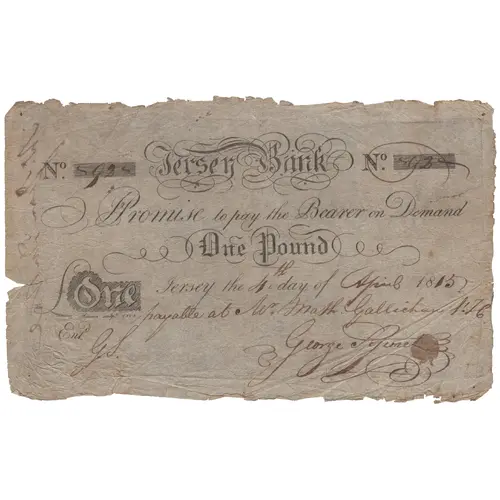 Jersey Bank
No. 592 No. 592
Promise to pay the Bearer on Demand
One Pound
Jersey the 4th day of April 1815
£One payable at Mr. Math. Gallichan
Ent.
G.S. George